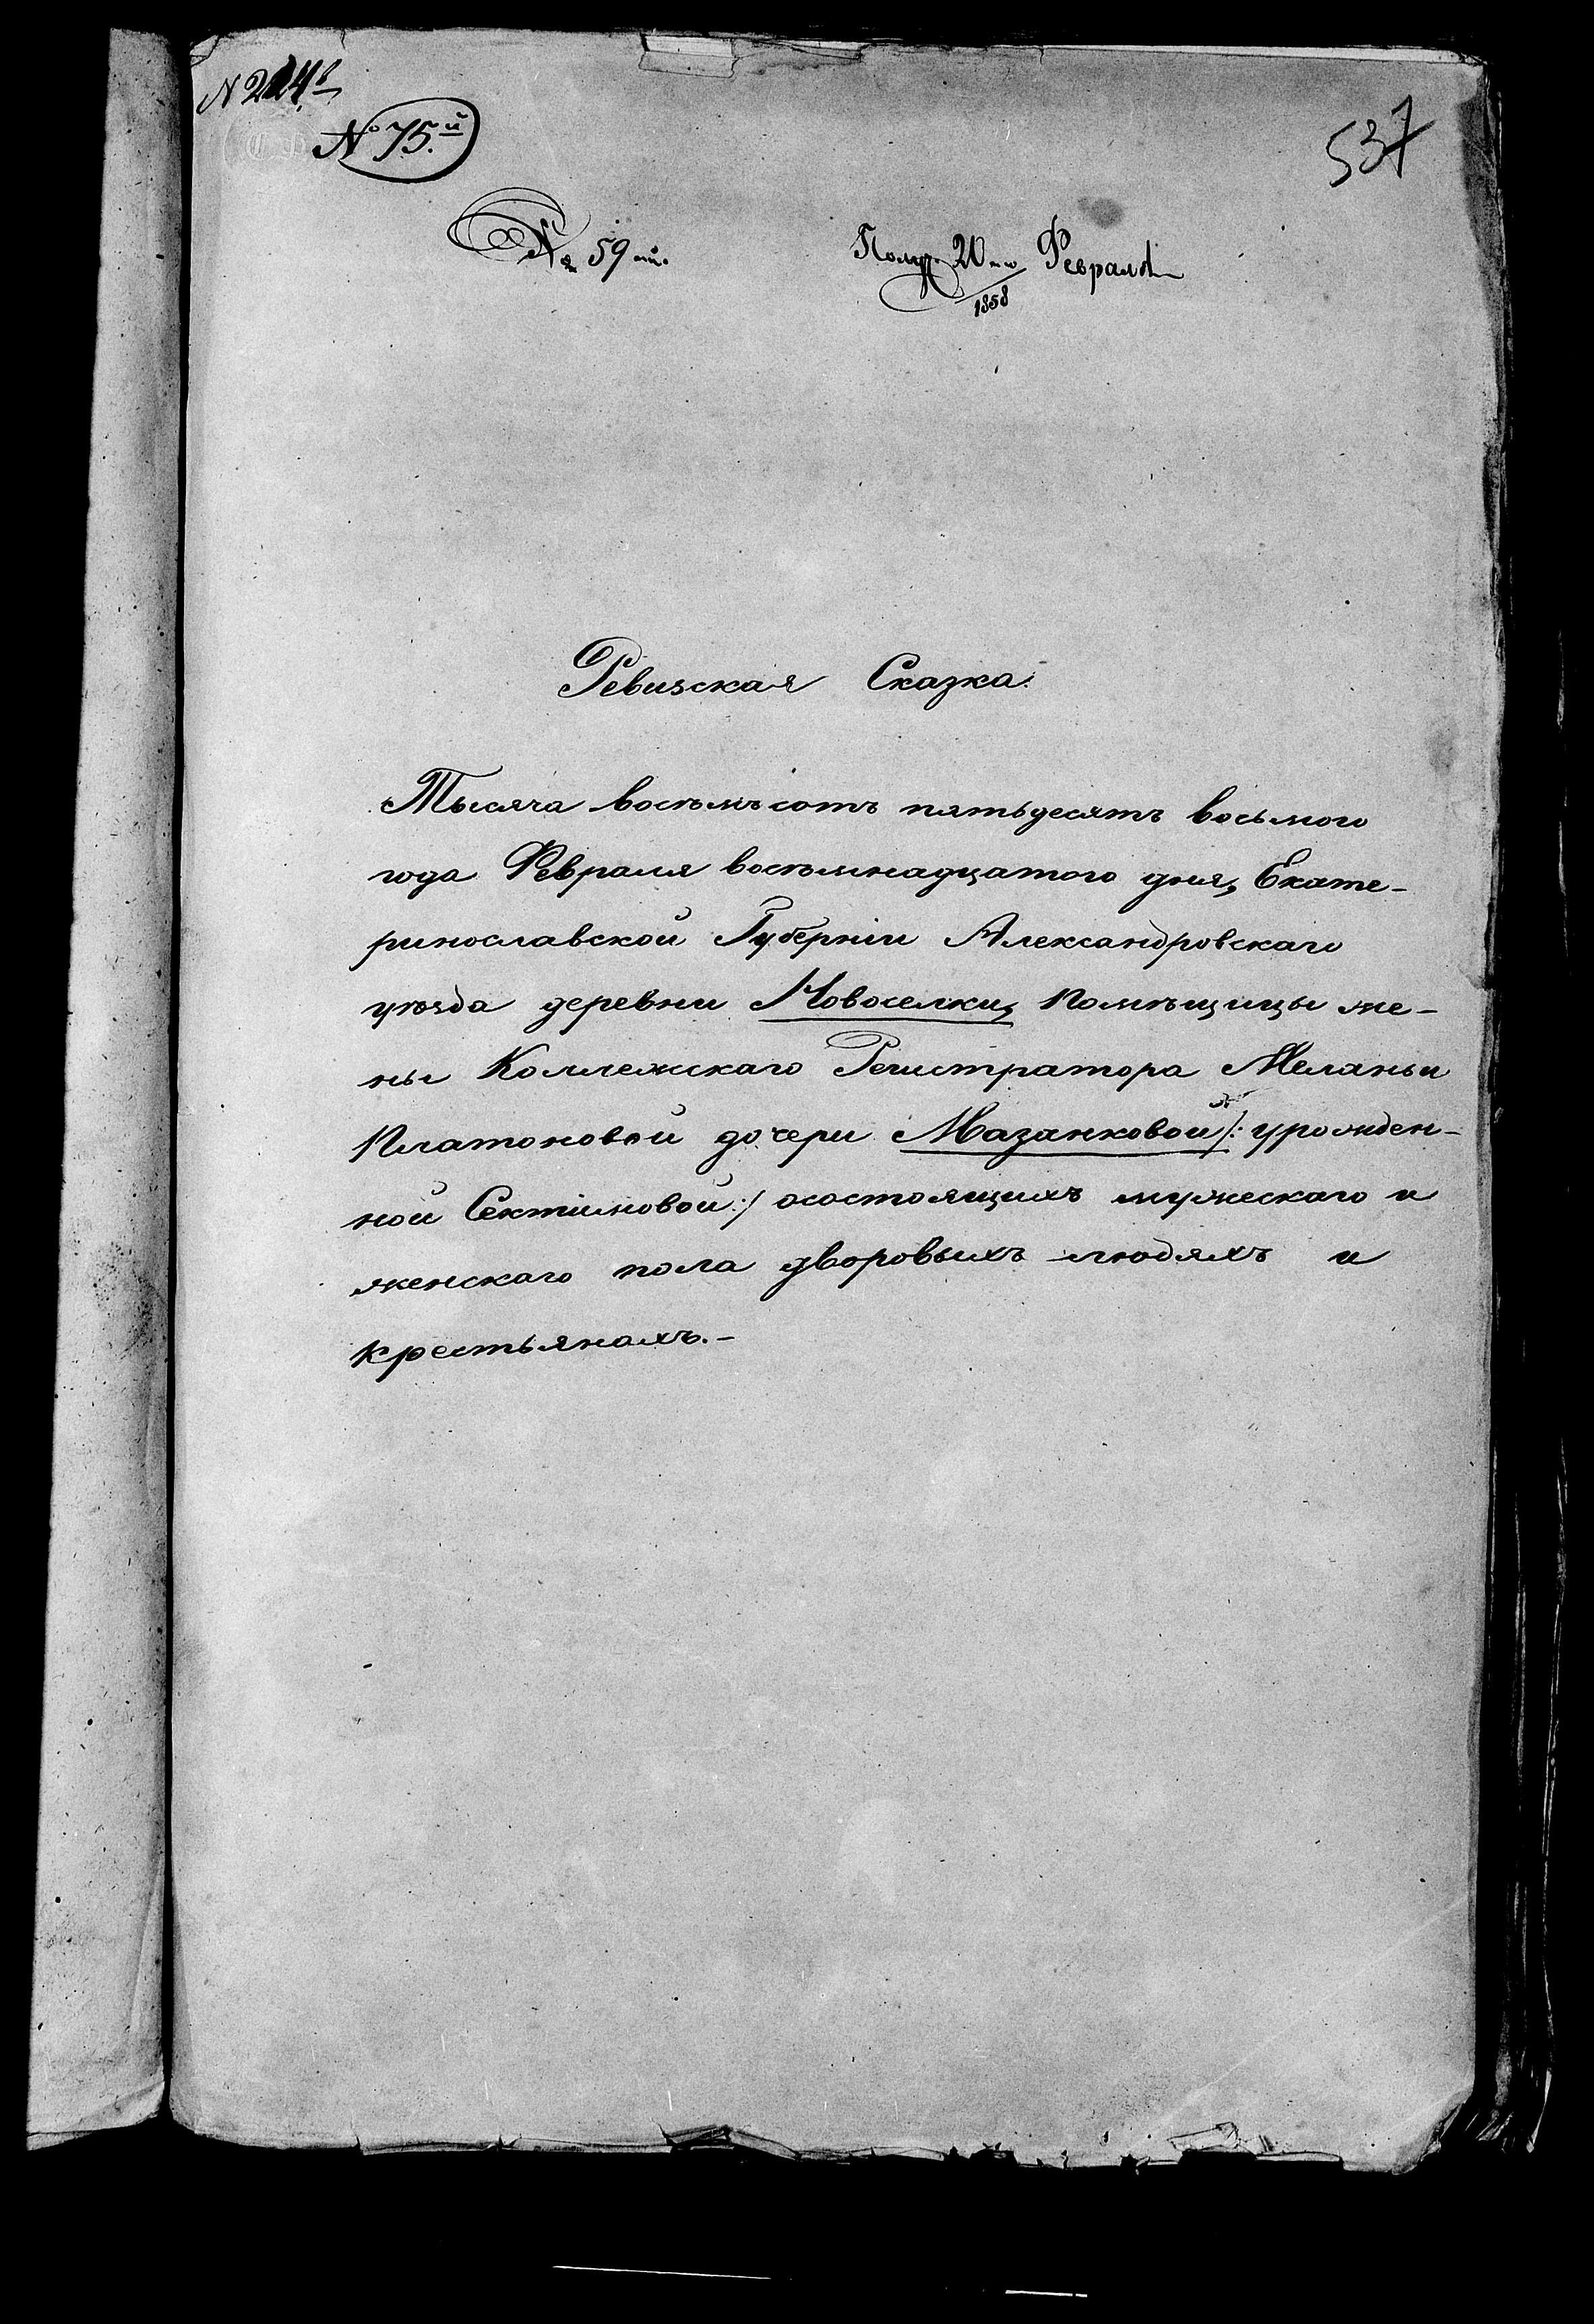 № 75.й
537
№ 59 й.
Получ. 20го Февраля
1858
Ревизская Сказка.
Тысяча восемьсотъ пятьдесятъ восьмого
года Февраля восемнадцатого дня, Екате-
ринославской Губерніи Александровскаго
уѣзда деревни Новоселки, Помѣщицы же-
ны Коллежскаго Регистратора Меланьи
Платоновой дочери Мазанковой /: урожден-
ной :/ осостоящихъ мужескаго и
женскаго пола дворовыхъ людяхъ и
крестьянахъ.-